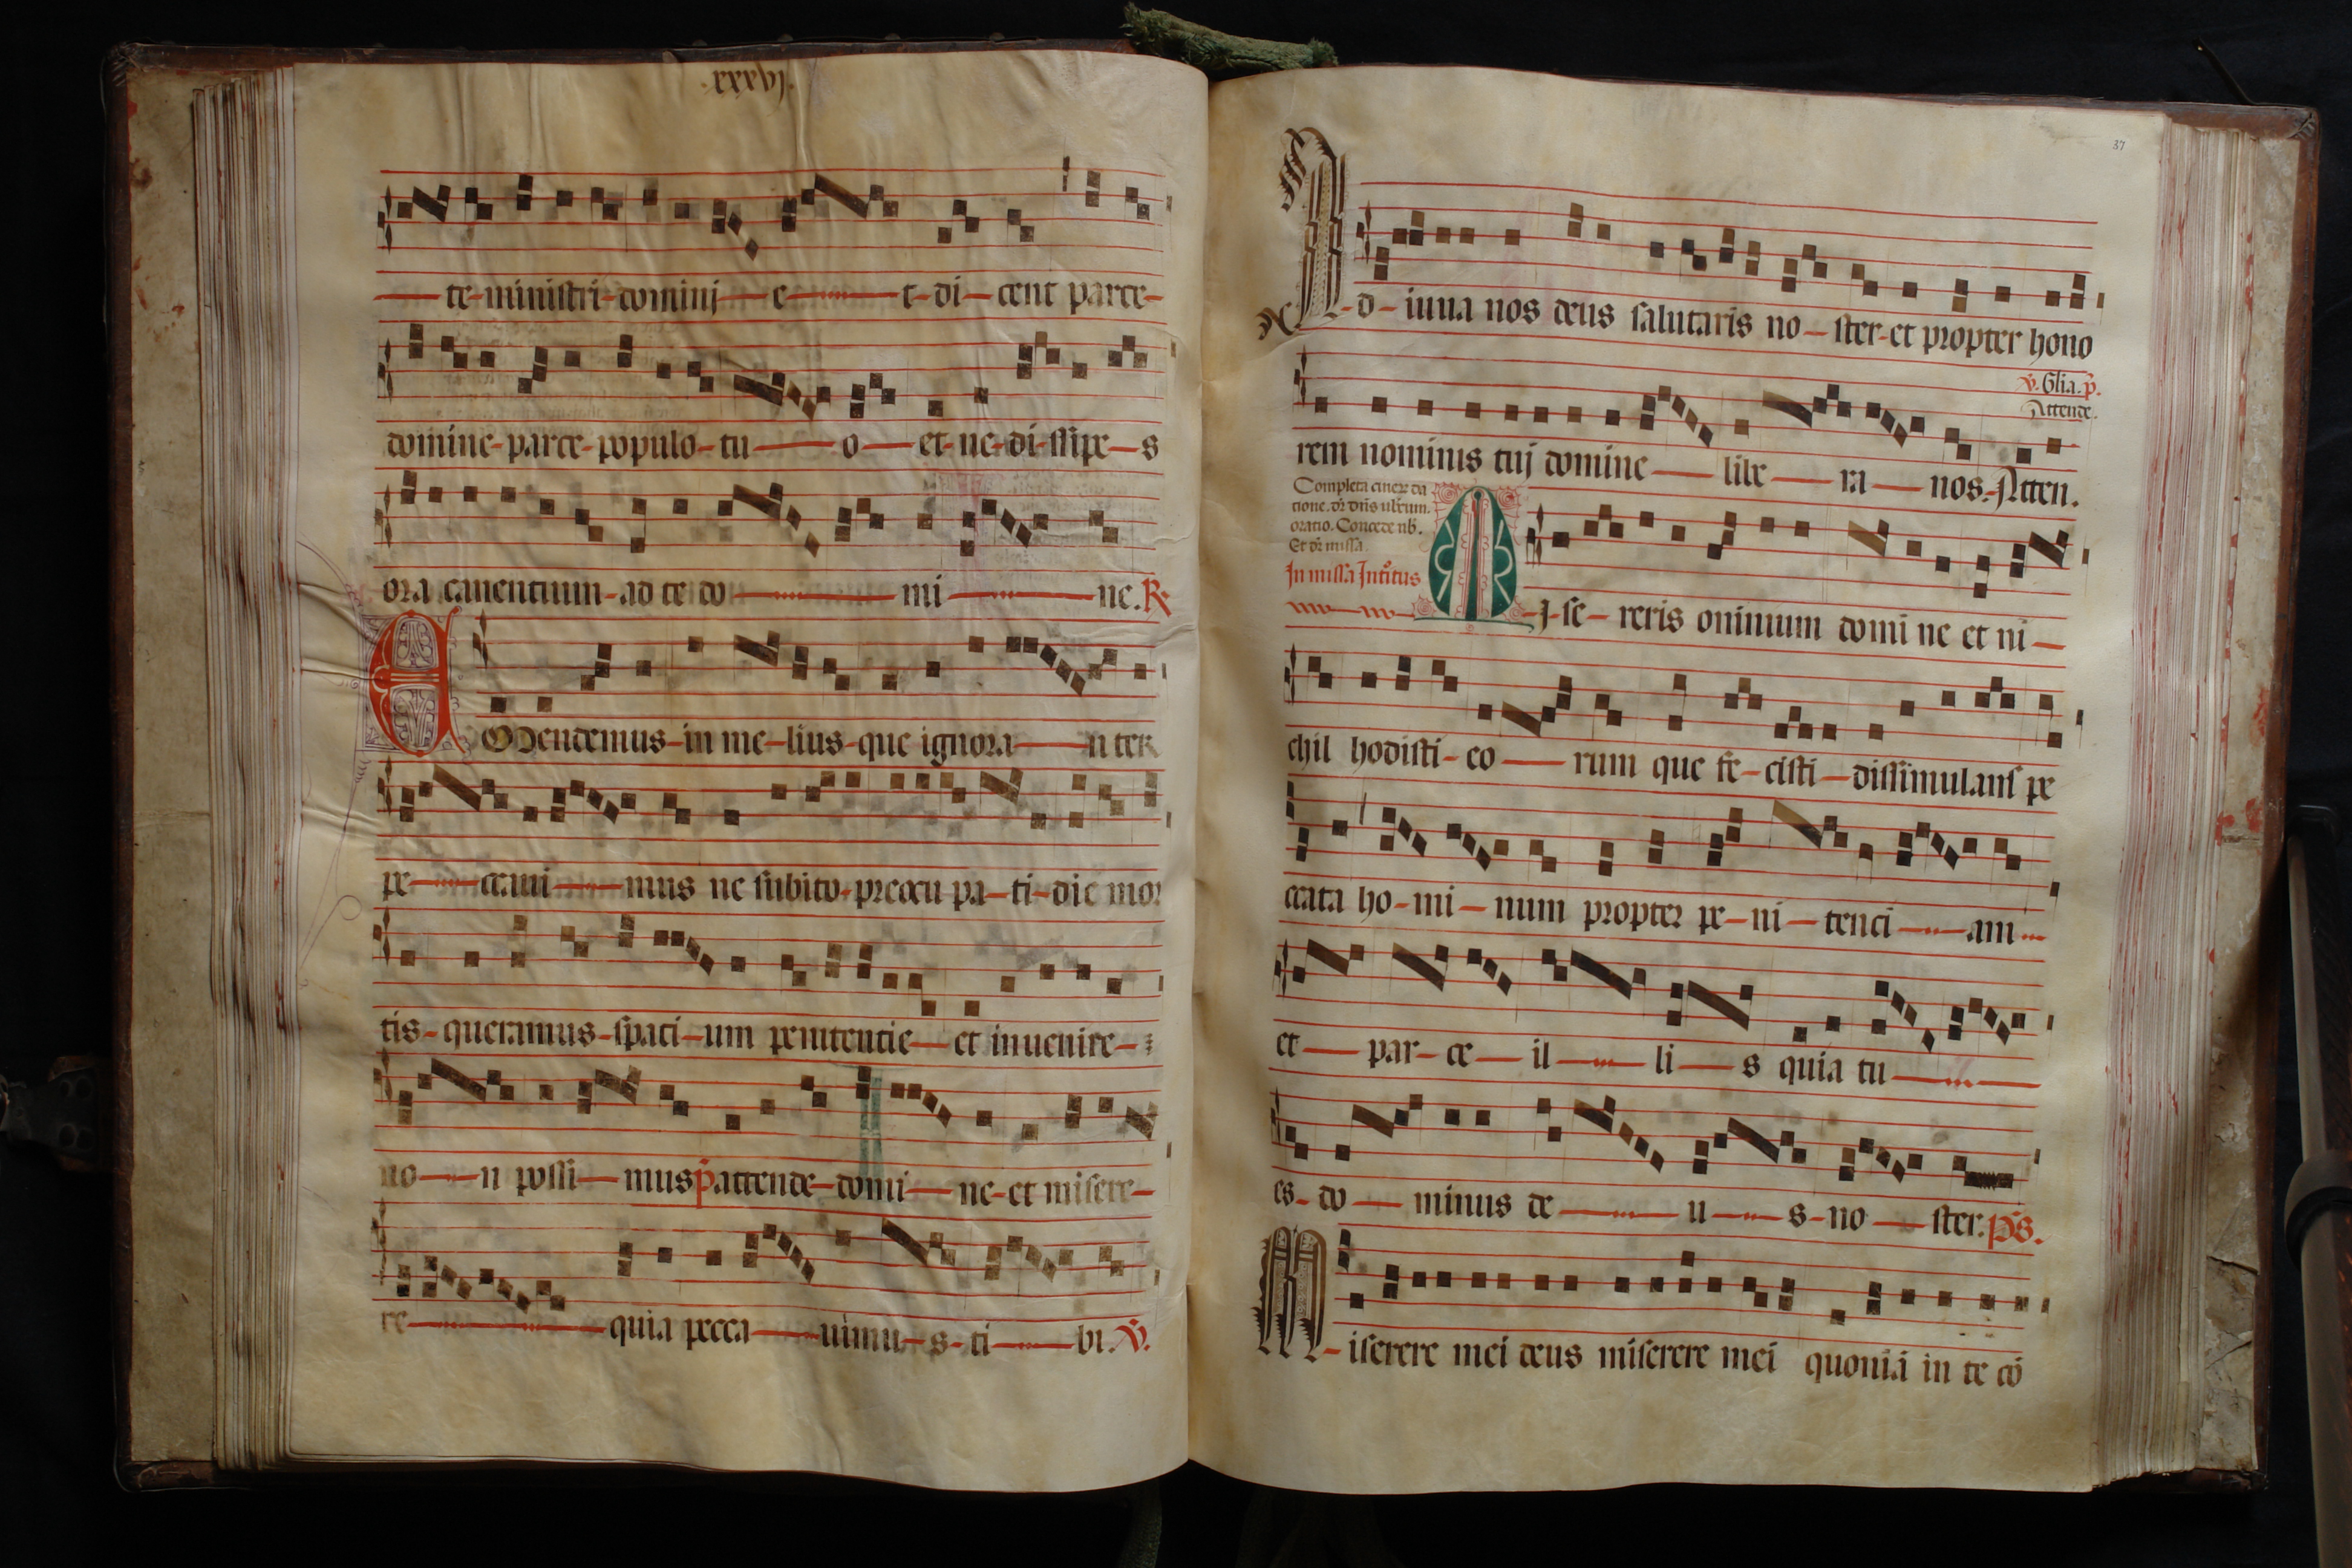 .xxxvj.
te ministri dominj e t di cent parce
domine parce populo tu o et ne dissipe s
ora canentium ad te do mi ne. R
EMendemus in me lius que ignora n ter
pe ccaui mus ne subito preoccu pa ti die mor
tis queramus spaci um penitentie et inuenire
no n possi mus p attende domi ne et misere
re quia pecca uimu s ti bi. V.
37
Ad iuua nos deus salutaris no ster et propter hono
V. Glia. p.
Attende.
rem nominis tuj domine libe ra nos. Atten.
Completa
oratio. Concede nb.
Et dr missa.
In missa Introitus
MI se reris omnium domi ne et ni
chil hodisti eo rum que fe cisti dissimulans pe
ccata ho mi num propter pe ni tenci am
et par ce il li s quia tu
es do minus de u s no ster. ps.
Miserere mei deus miserere mei quoniā in te cō